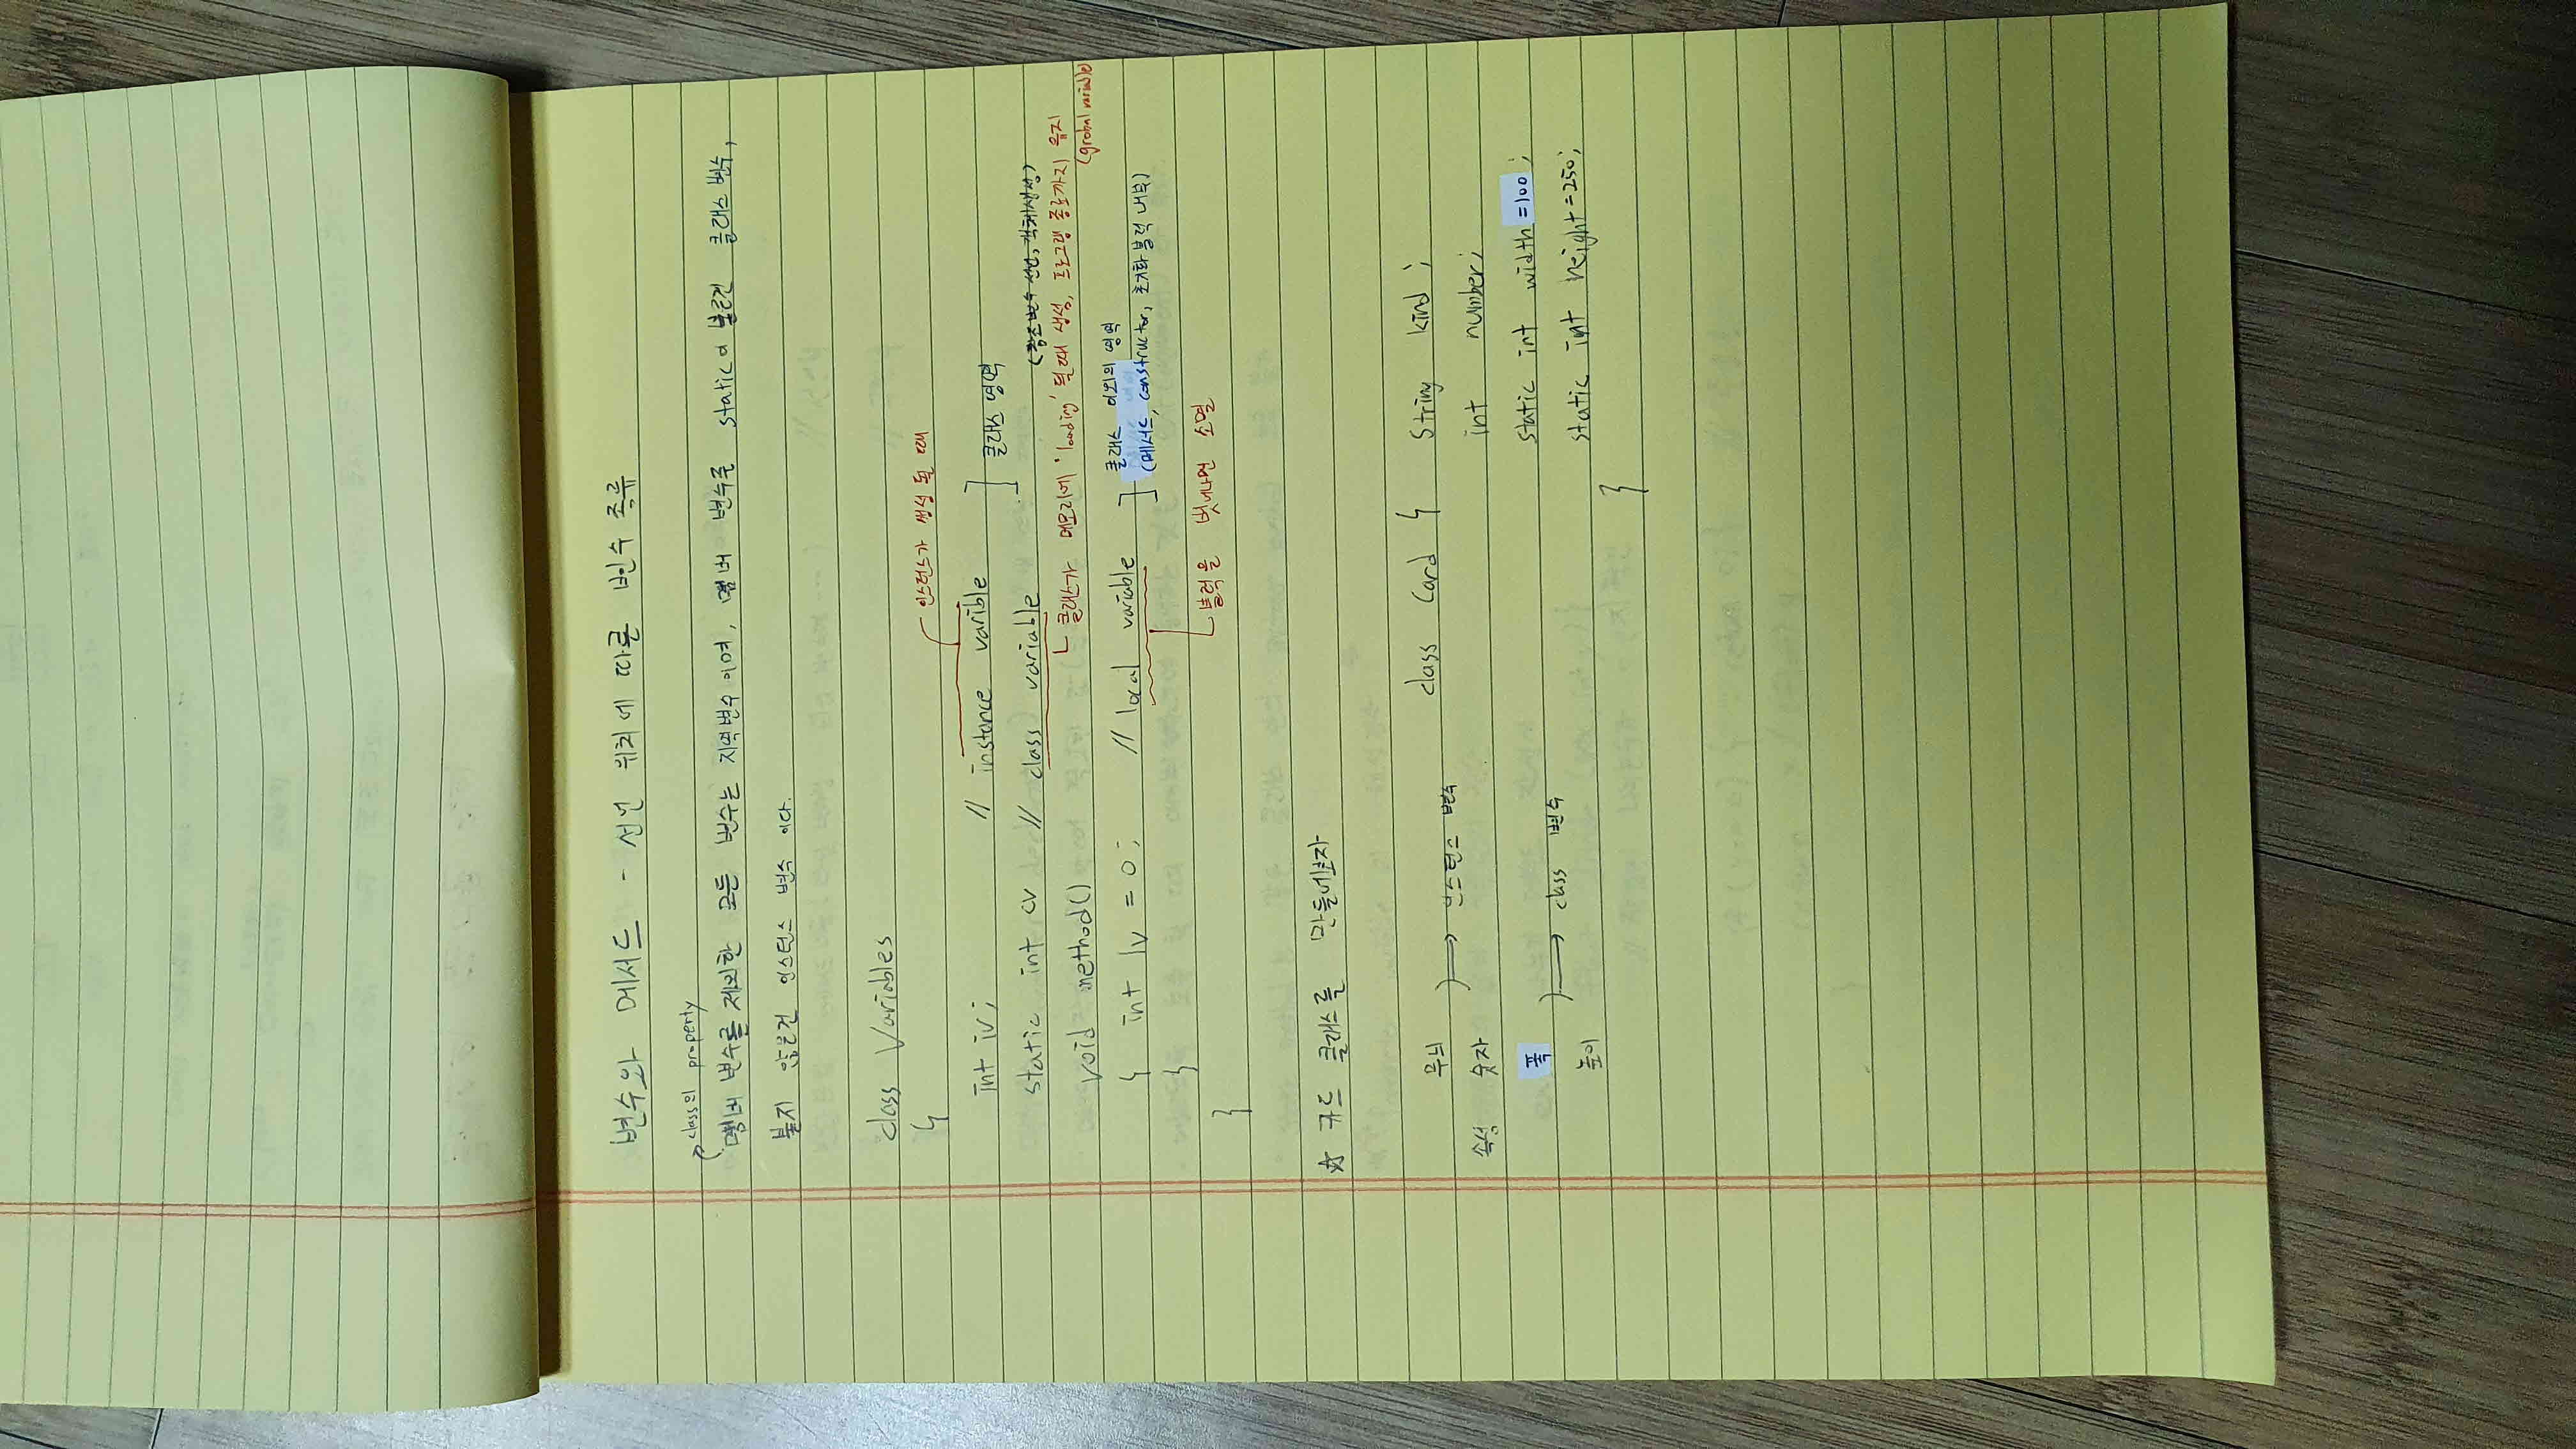 변수와 메서드 - 선언 위치에 따른 변수 종류
class의 property
멤버 변수를 제외한 모든 변수는 지역변수 이며, 멤버 변수중 static이 붙은건 클래스 변수,
붙지 않은건 인스턴스 변수 이다.
class Variables
{
인스턴스가 생성 될 때
int iv; // instance varible ] 클래스 영역
static int cv // class variable (참조변수 선언, 객체생성)
└ 클래스가 메모리에 'loading' 될 때 생성, 프로그램 종료까지 유지
(grobal variable)
void method()
{ int lv = 0; // local variable ] 클래스 이외의 영역
(메서드, constructor, 초기화 블럭 내부)
}
└ 블럭을 벗어나면 소멸
}
☆ 카드 클래스를 만들어보자
속성 무늬 숫자 → 인스턴스 변수
폭 높이 → class 변수
class Card { String kind;
int number;
static int width =100;
static int height=250;
}